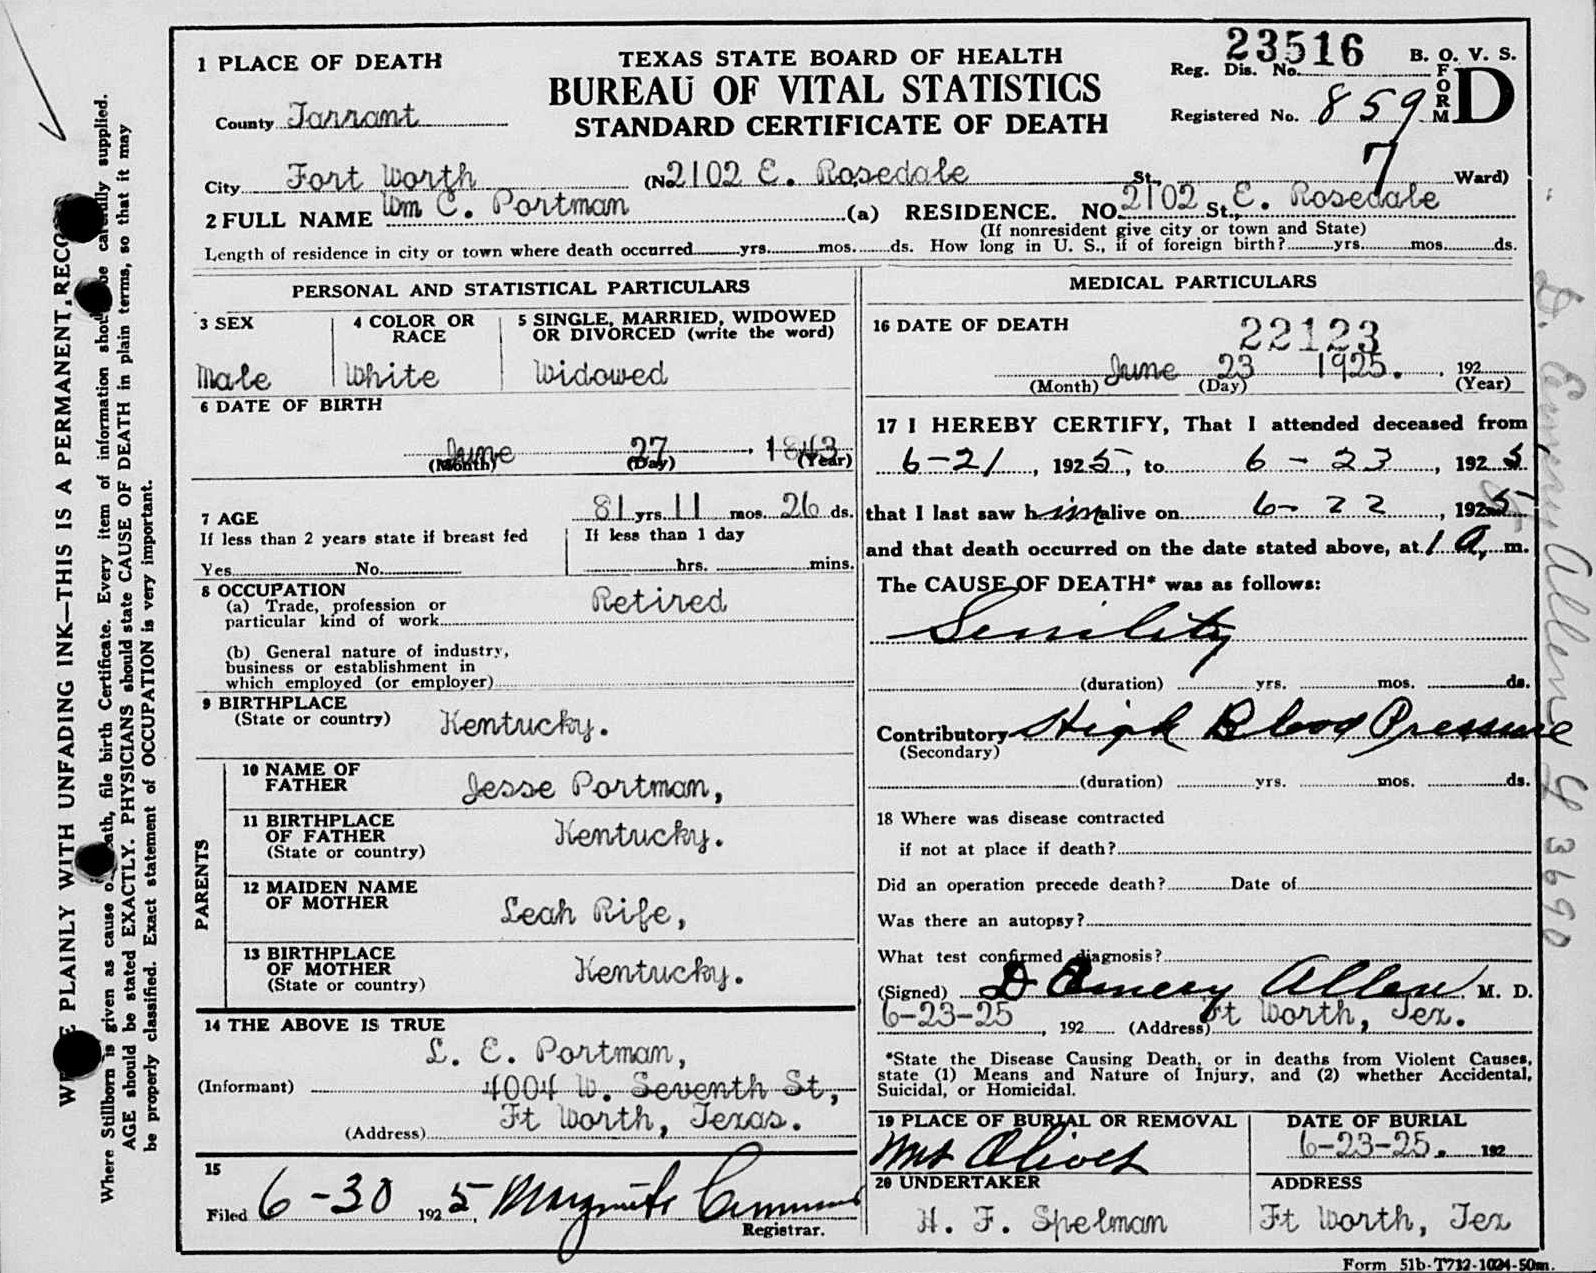 1 PLACE OF DEATH
TEXAS STATE BOARD OF HEALTH
BUREAU OF VITAL STATISTICS
STANDARD CERTIFICATE OF DEATH
23516
B. O. V. S.
Reg. Dis. No.
FORM D
County Tarrant
Registered No. 859
City Fort Worth (No 2102 E. Rosedale St., 7 Ward)
2 FULL NAME Wm C. Portman (a) RESIDENCE. NO. 2102 St., E. Rosedale
(If nonresident give city or town and State)
Length of residence in city or town where death occurred yrs. mos. ds. How long in U. S., if of foreign birth? yrs. mos. ds.
PERSONAL AND STATISTICAL PARTICULARS
3 SEX
Male
4 COLOR OR RACE
White
5 SINGLE, MARRIED, WIDOWED
OR DIVORCED (write the word)
Widowed
6 DATE OF BIRTH
June 27 1843
(Month) (Day) (Year)
7 AGE 81 yrs 11 mos. 26 ds.
If less than 2 years state if breast fed
Yes No
If less than 1 day
hrs. mins.
8 OCCUPATION
(a) Trade, profession or
particular kind of work Retired
(b) General nature of industry,
business or establishment in
which employed (or employer)
9 BIRTHPLACE
(State or country) Kentucky.
PARENTS
10 NAME OF
FATHER Jesse Portman,
11 BIRTHPLACE
OF FATHER
(State or country) Kentucky.
12 MAIDEN NAME
OF MOTHER Leah Rife,
13 BIRTHPLACE
OF MOTHER
(State or country) Kentucky.
14 THE ABOVE IS TRUE
L. E. Portman,
(Informant) 4004 W. Seventh St,
Ft Worth, Texas.
(Address)
15
Filed 6-30 1925, Registrar.
MEDICAL PARTICULARS
16 DATE OF DEATH
22123
June 23 1925. 192
(Month) (Day) (Year)
17 I HEREBY CERTIFY, That I attended deceased from
6-21, 1925, to 6-23, 1925
that I last saw him alive on 6-22, 1925
and that death occurred on the date stated above, at 1 A. m.
The CAUSE OF DEATH* was as follows:
Senility
(duration) yrs. mos. ds.
Contributory High Blood Pressure
(Secondary)
(duration) yrs. mos. ds.
18 Where was disease contracted
if not at place if death?
Did an operation precede death? Date of
Was there an autopsy?
What test confirmed diagnosis?
(Signed) D Emery Allen M. D.
6-23-25, 192 (Address) Ft Worth, Tex.
*State the Disease Causing Death, or in deaths from Violent Causes,
state (1) Means and Nature of Injury, and (2) whether Accidental,
Suicidal, or Homicidal.
19 PLACE OF BURIAL OR REMOVAL
Mt Olivet
DATE OF BURIAL
6-23-25. 192
20 UNDERTAKER
H. F. Spelman
ADDRESS
Ft Worth, Tex
Form 51b-T712-1024-50m.
PLAINLY WITH UNFADING INK—THIS IS A PERMANENT
Where Stillborn is given as cause of death, file birth Certificate. Every item of information should be carefully supplied.
AGE should be stated EXACTLY. PHYSICIANS should state CAUSE OF DEATH in plain terms, so that it may
be properly classified. Exact statement of OCCUPATION is very important.
D. Emery Allen 43690